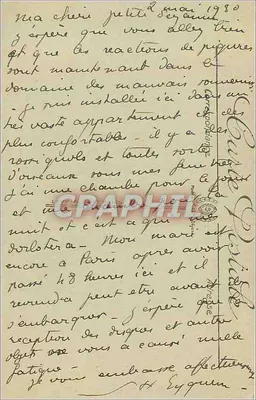 2 mai 1930
Ma chère petite Suzanne
j'espère que vous allez bien
et que les réactions de piqures
sont maintenant dans le
domaine des mauvais souvenirs
je suis installée ici dans un
très vaste appartement des
plus confortable - il y a des
rossignols et toutes sortes
d'oiseaux sous mes fenêtres
j'ai une chambre pour le jour
et
nuit et c'est à qui
dorlotera - Mon mari est
encore à Paris après avoir
passé 48 heures ici et il
reviendra peut être avant
s'embarquer - J'espère que
réception des disques et autres
objets ne vous a causé mille
fatigue -
Je vous embrasse affectueusement
CPAPHIL
Carte Postale
Correspondance